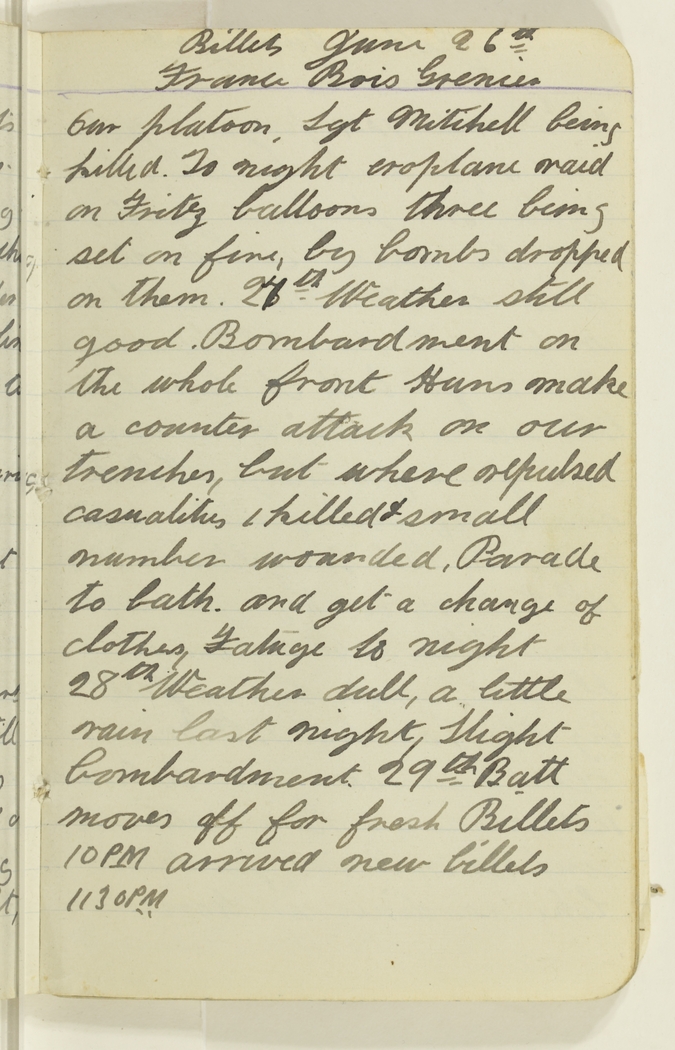 Billets June 26th
France Bois Grenier
our platoon, Sgt Mitchell being
killed. To night eroplane raid
on Fritz balloons three being
set on fire, by bombs dropped
on them. 27th Weather still
good. Bombardment on
the whole front Huns make
a counter attack on our
trenches, but where repulsed
casualities 1 killed & small
number wounded, Parade
to bath. and get a change of
clothes, Fatuge to night
28th Weather dull, a little
rain last night, Slight
bombardment. 29th Batt
moves off for fresh Billets
10PM arrived new billets
1130PM